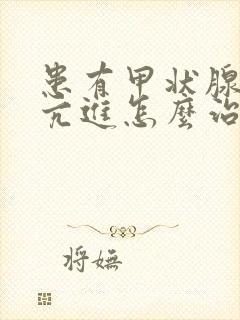 患有甲状腺
亢進怎麼治
将嫵